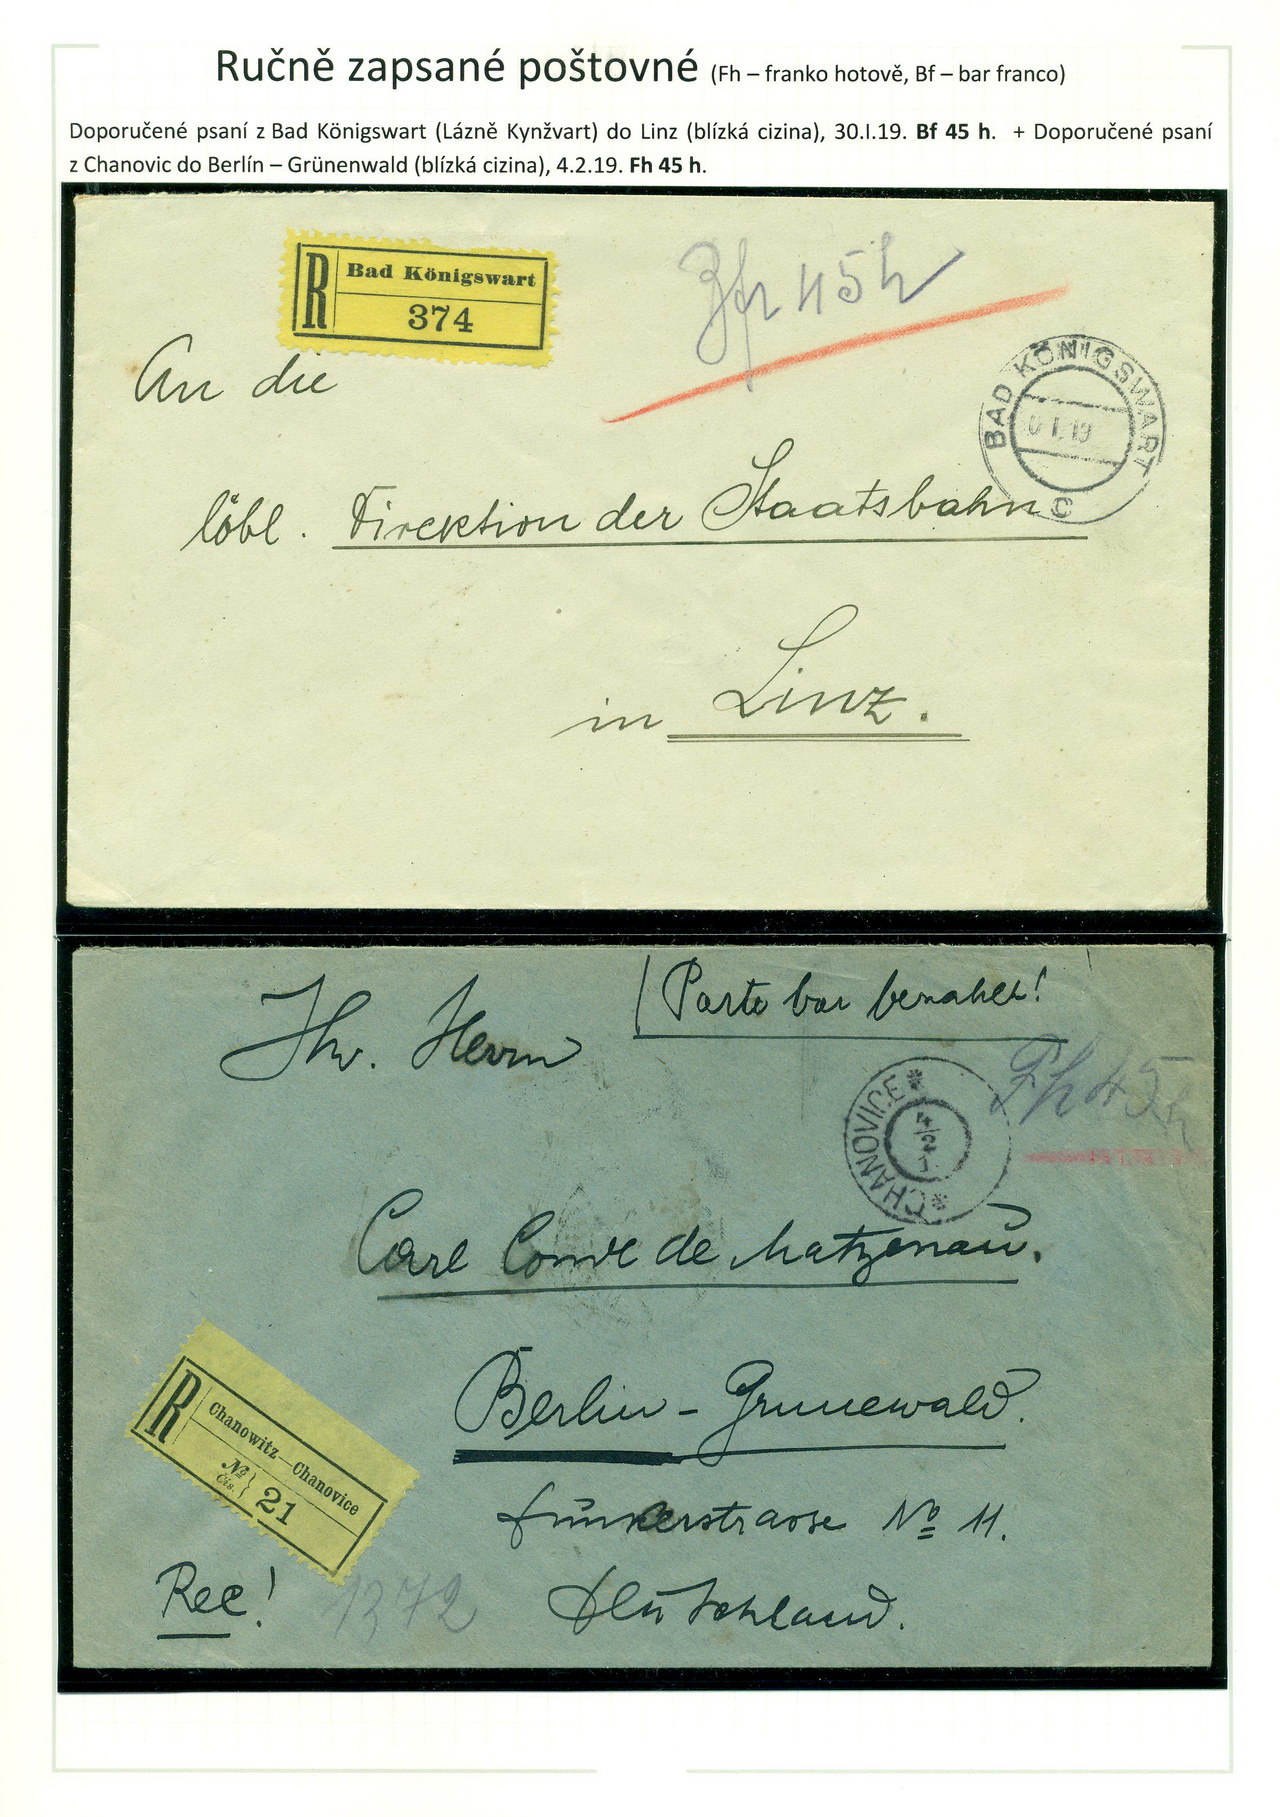 Ručně zapsané poštovné (Fh – franko hotově, Bf – bar franco)
Doporučené psaní z Bad Königswart (Lázně Kynžvart) do Linz (blízká cizina), 30.I.19. Bf 45 h. + Doporučené psaní
z Chanovic do Berlín – Grünenwald (blízká cizina), 4.2.19. Fh 45 h.
R Bad Königswart
374
45 h
An die
BAD KÖNIGSWART
0 I. 19
C
löbl. Direktion der Staatsbahn
in Linz.
Porto bar
Herrn
Fh 45 h
*CHANOVICE*
4/2
1
Carl Comte de Matzenau.
Berlin - Grunewald.
R Chanowitz—Chanovice
No
Čís. } 21
No 11.
Rec!
1372
Deutschland.